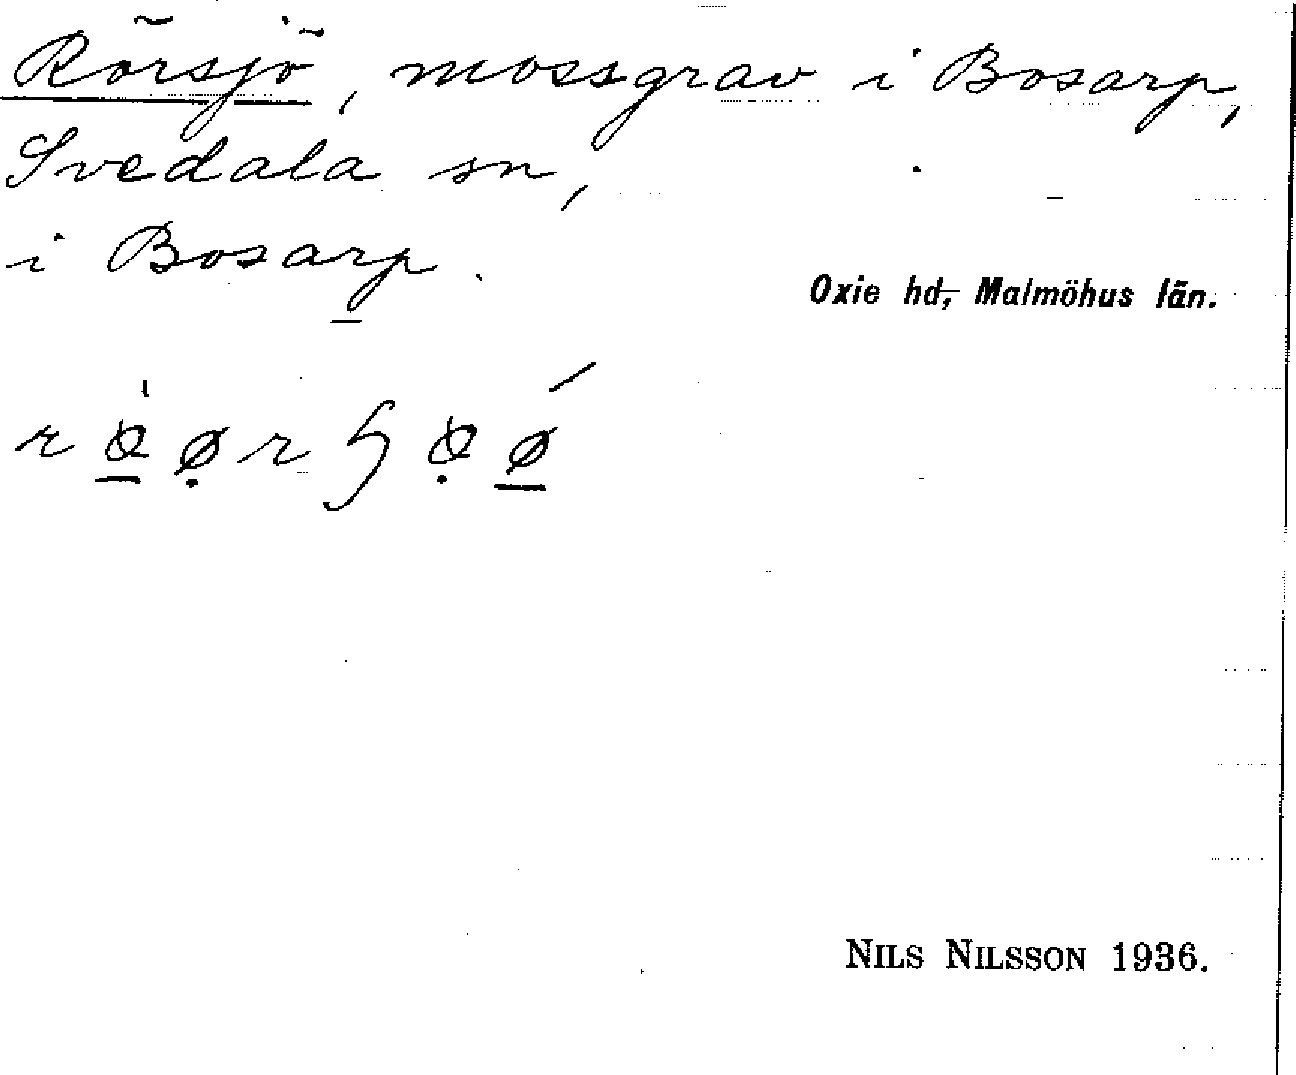 Rörsjö, mossgrav i Bosarp,
Svedala sn,
i Bosarp.
Oxie hd, Malmöhus län.
NILS NILSSON 1936.